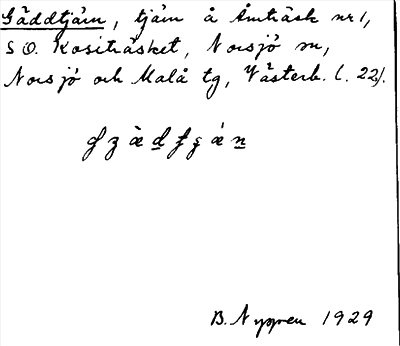 Gäddtjärn, tjärn å Åmträsk nr 1,
SO. Kositräsket, Norsjö sn,
Norsjö och Malå tg, Västerb. l. 22).
B. Nygren 1929